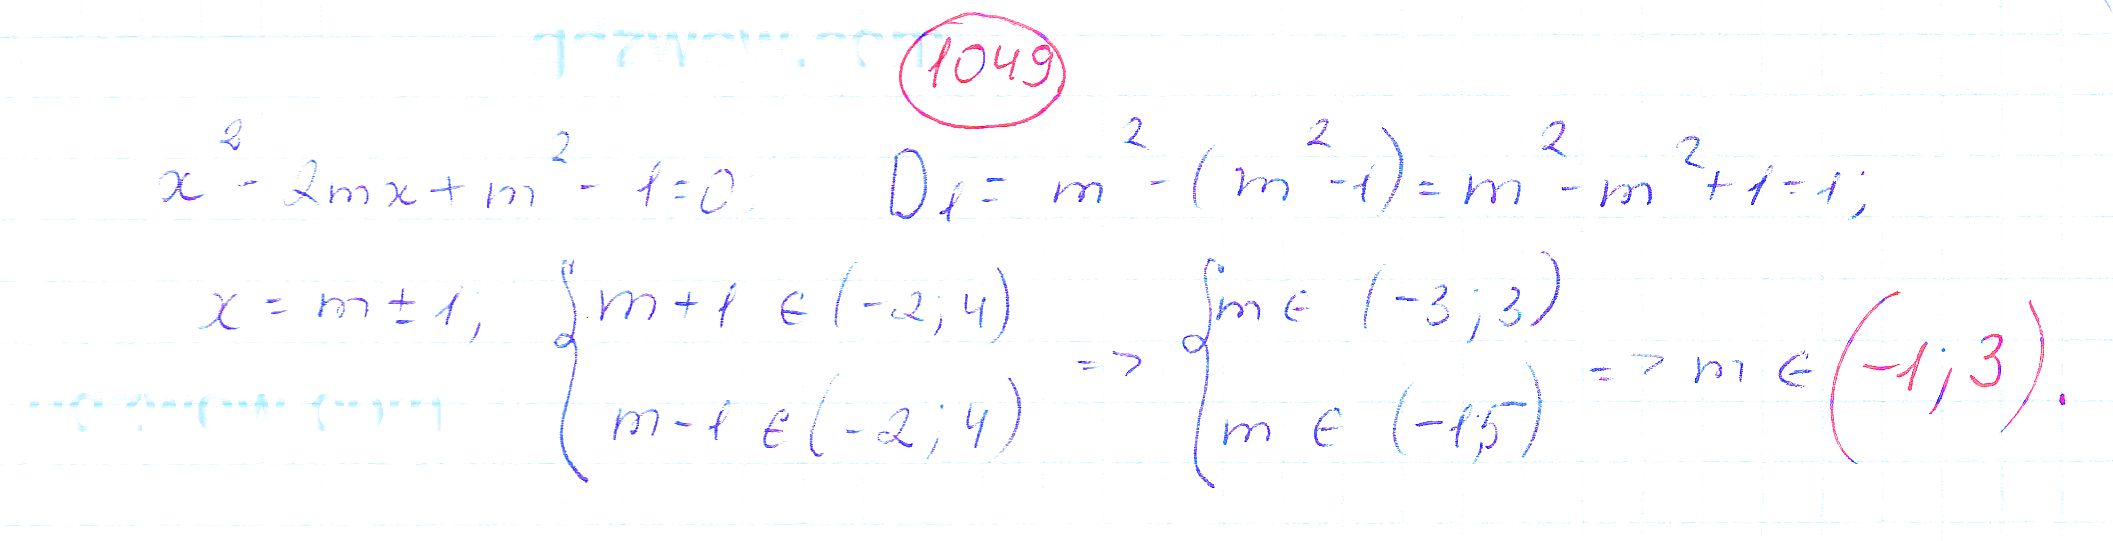 1049
x² - 2mx + m² - 1 = 0. D₁ = m² - (m² - 1) = m² - m² + 1 = 1;
x = m ± 1, { m + 1 ∈ (-2; 4) => { m ∈ (-3; 3) => m ∈ (-1; 3).
m - 1 ∈ (-2; 4) m ∈ (-1; 5)